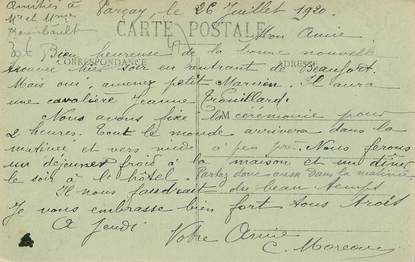 Amitiés à
Mr et Mme
Rambault
Parçay, le 26 Juillet 1920.
CARTE POSTALE
Mon Amie
Bien heureuse de la bonne nouvelle
CORRESPONDANCE
ADRESSE
hier soir en rentrant de Beaufort.
Mais oui, amenez petit Marcien. Il aura
une cavalière Jeanne Trouillard.
Nous avons fixé la cérémonie pour
2 heures. Tout le monde arrivera dans la
matinée et vers midi à peu près. Nous ferons
un déjeuner froid à la maison et un dîner
le soir à l'hôtel. Partez donc aussi dans la matinée
Il nous faudrait du beau temps
Je vous embrasse bien fort tous trois
A jeudi
Votre Amie
C. Moreau